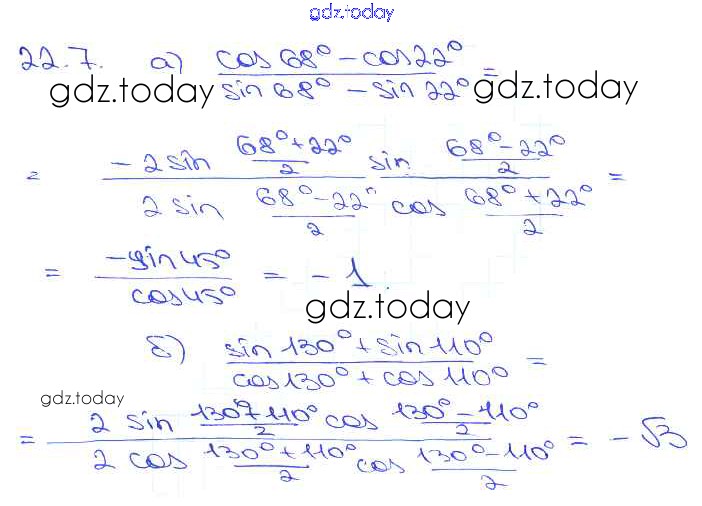 gdz.today
22.7. а) (cos 68° - cos 22°) / (sin 68° - sin 22°) =
gdz.today gdz.today
= (-2 sin (68° + 22°)/2 sin (68° - 22°)/2) / (2 sin (68° - 22°)/2 cos (68° + 22°)/2) =
= (-sin 45°) / (cos 45°) = - 1.
gdz.today
б) (sin 130° + sin 110°) / (cos 130° + cos 110°) =
gdz.today
= (2 sin (130° + 110°)/2 cos (130° - 110°)/2) / (2 cos (130° + 110°)/2 cos (130° - 110°)/2) = - √3